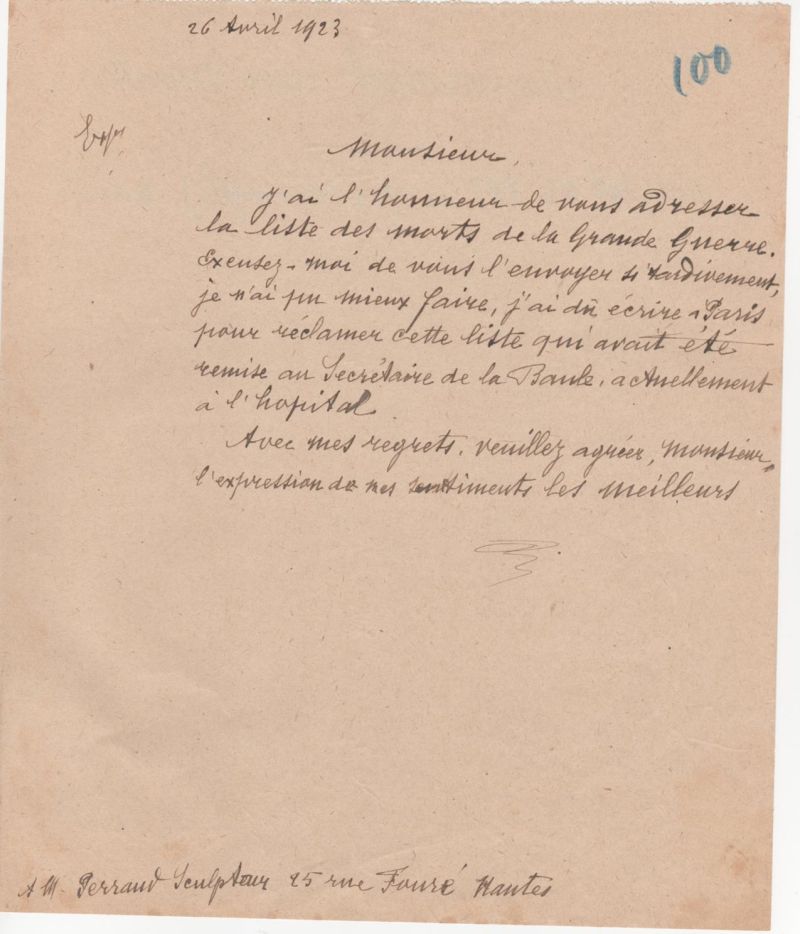 26 Avril 1923
100
Monsieur,
J'ai l'honneur de vous adresser
la liste des morts de la Grande Guerre.
Excusez-moi de vous l'envoyer si tardivement,
je n'ai pu mieux faire, j'ai dû écrire à Paris
pour réclamer cette liste qui avait été
remise au Secrétaire de la Baule, actuellement
à l'hopital
Avec mes regrets, veuillez agréer, Monsieur,
l'expression de mes sentiments les meilleurs
A M. Perraud Sculpteur 25 rue Fouré Nantes